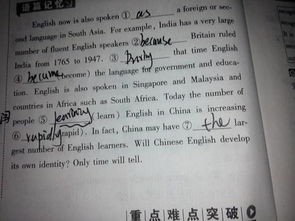 语篇记忆
English now is also spoken ① as a foreign or sec-
ond language in South Asia. For example, India has a very large
number of fluent English speakers ② because Britain ruled
India from 1765 to 1947. ③ that time English
④ became (become) the language for government and educa-
tion. English is also spoken in Singapore and Malaysia and
countries in Africa such as South Africa. Today the number of
people ⑤ learning (learn) English in China is increasing
⑥ rapidly (rapid). In fact, China may have ⑦ the lar-
gest number of English learners. Will Chinese English develop
its own identity? Only time will tell.
重点难点突破